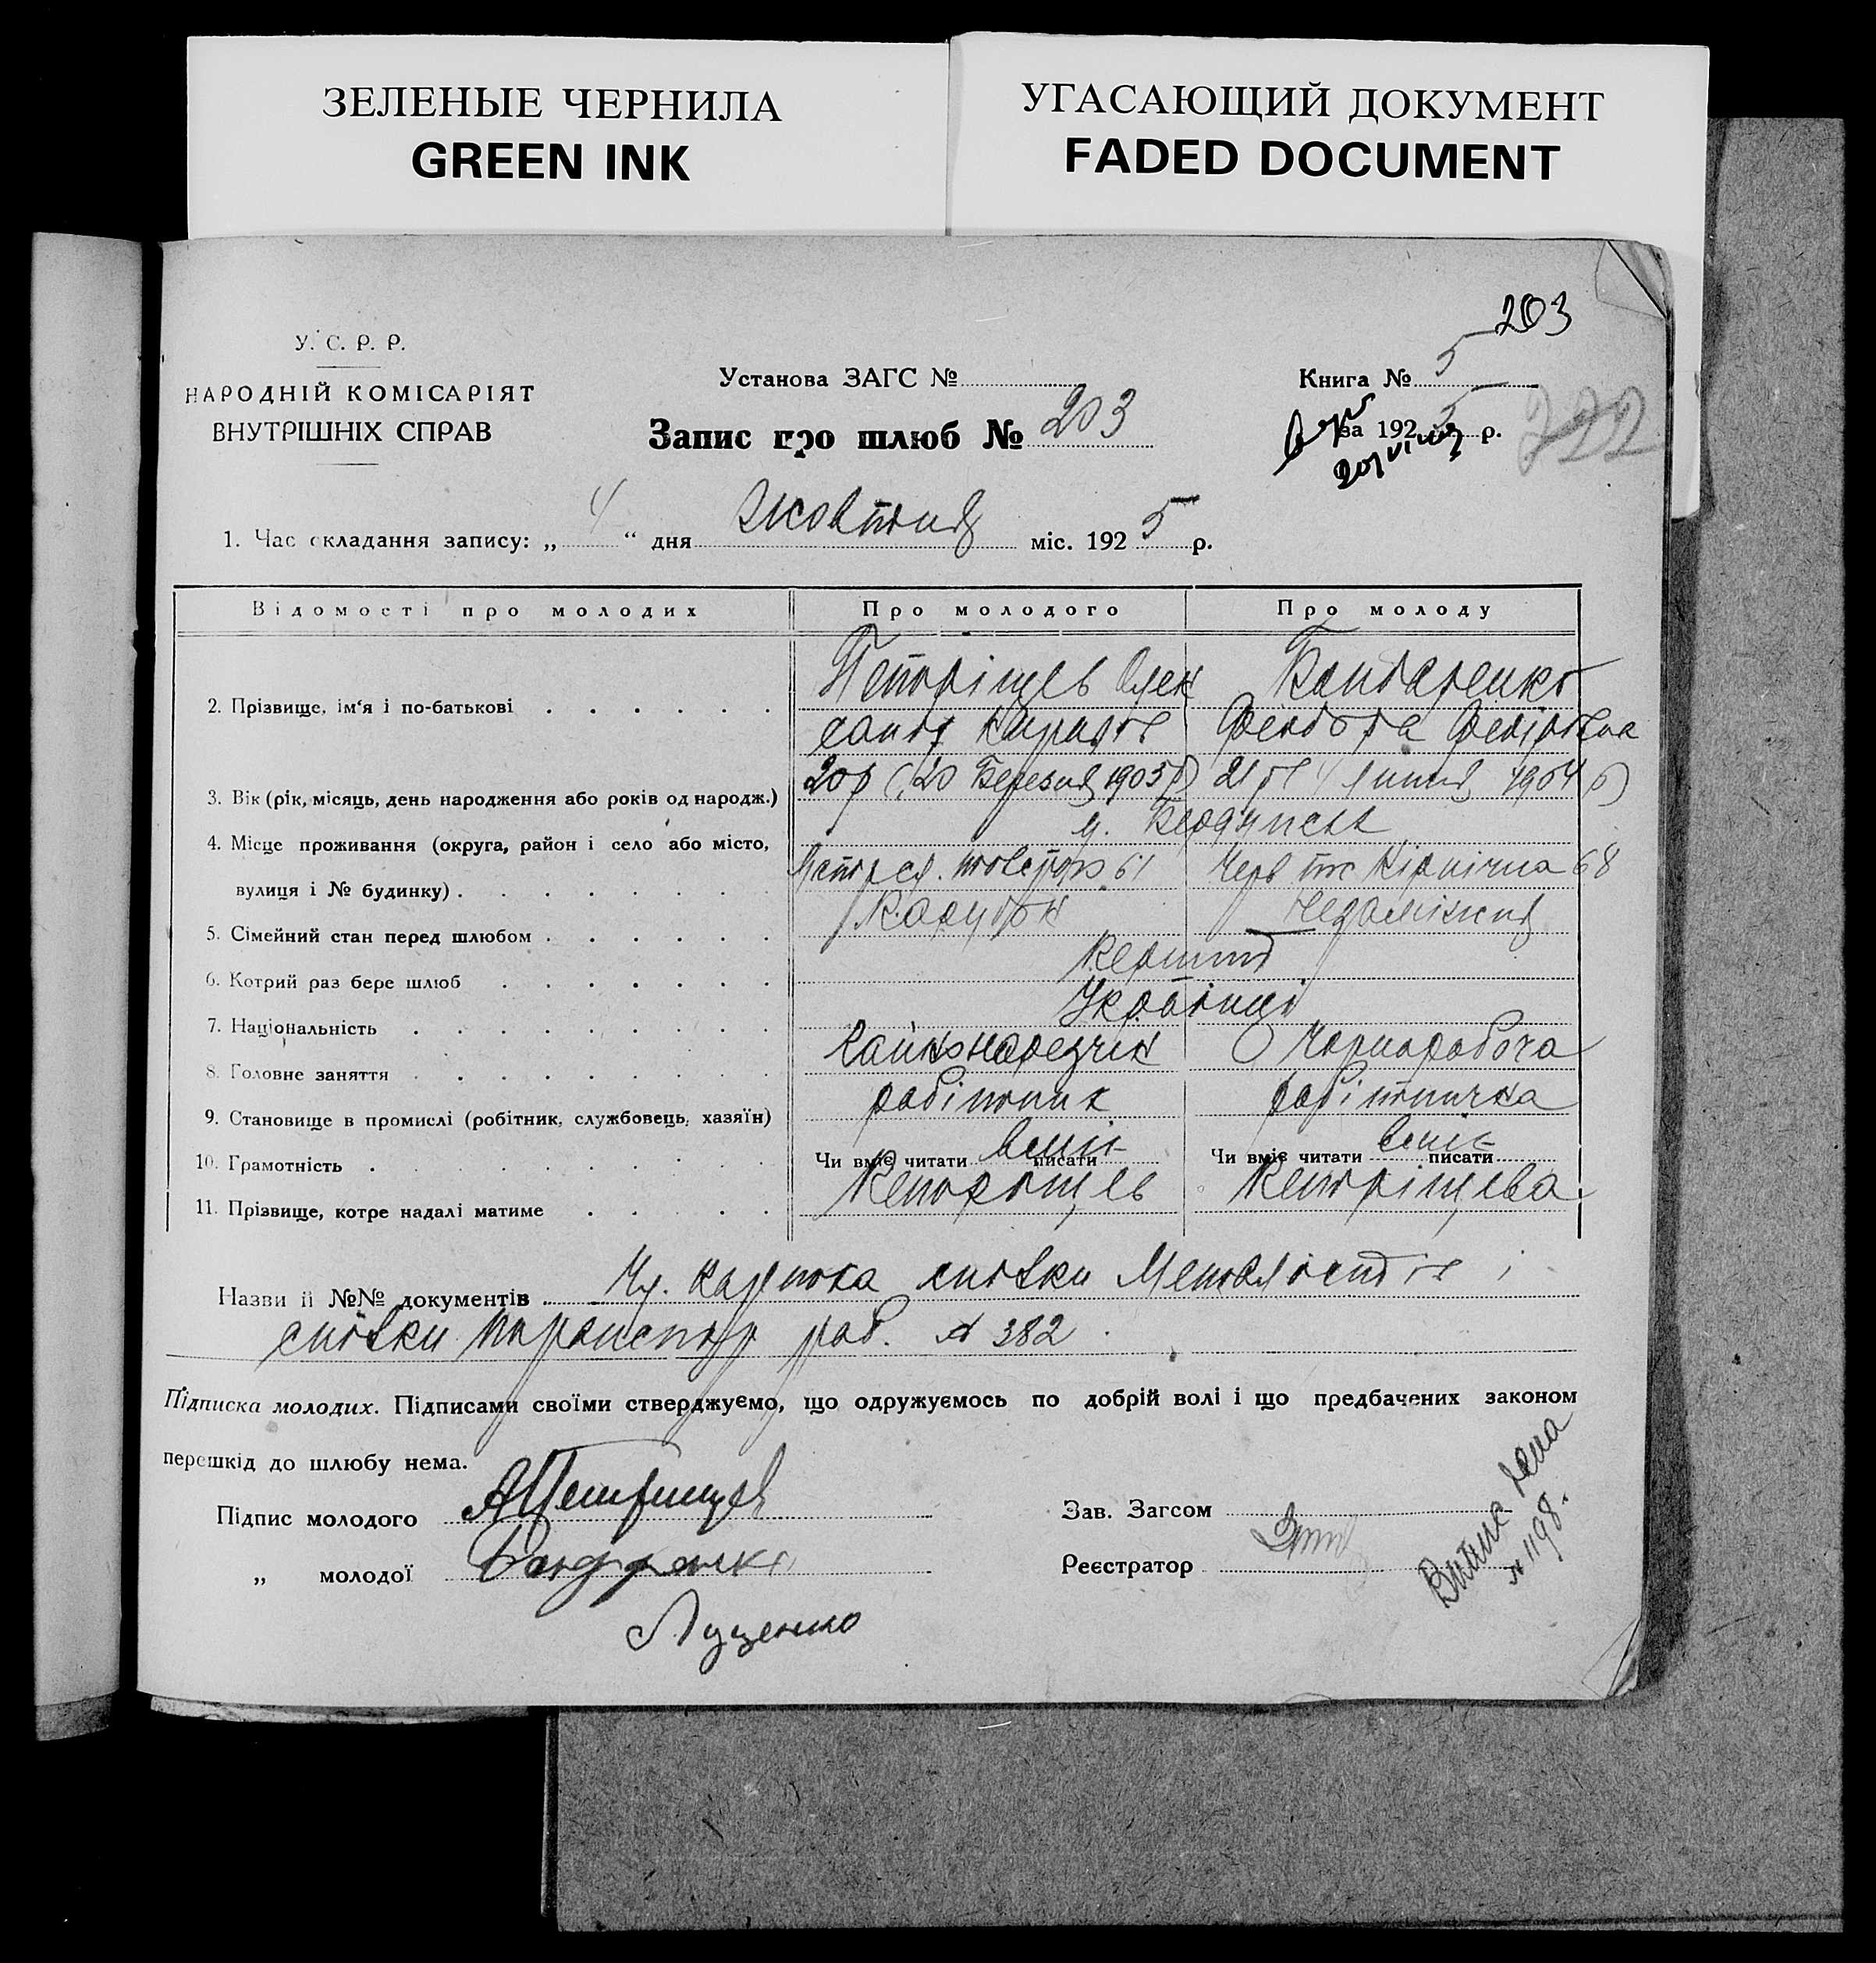 ЗЕЛЕНЫЕ ЧЕРНИЛА
GREEN INK
УГАСАЮЩИЙ ДОКУМЕНТ
FADED DOCUMENT
203
У. С. Р. Р.
НАРОДНІЙ КОМІСАРІЯТ
ВНУТРІШНІХ СПРАВ
Установа ЗАГС №
Запис про шлюб № 203
Книга № 5
за 1925 р.
722
1. Час складання запису: „ 4 “ дня Жовтня міс. 1925 р.
Відомості про молодих
Про молодого
Про молоду
2. Прізвище, ім'я і по-батькові
Петріщев Олек
Бондаренко
Федора Федірівна
3. Вік (рік, місяць, день народження або років од народж.)
20 р (20 Березня 1905 р)
21 р 4 липня 1904 р)
4. Місце проживання (округа, район і село або місто,
вулиця і № будинку)
61
Черв Кірпічна 68
5. Сімейний стан перед шлюбом
Парубок
Незаміжня
6. Котрий раз бере шлюб
Перший
7. Національність
Українці
8. Головне заняття
Чорноробоча
9. Становище в промислі (робітник, службовець, хазяїн)
робітник
робітничка
10. Грамотність
Чи вміє читати вміє писати
Чи вміє читати вміє писати
11. Прізвище, котре надалі матиме
Петріщев
Петріщева
Назви й №№ документів Чл. карточка спілки Металістів і
спілки транспор роб. № 382
Підписка молодих. Підписами своїми стверджуємо, що одружуємось по добрій волі і що предбачених законом
перешкід до шлюбу нема.
Підпис молодого АПетрищев
„ молодої Бондаренко
Луценко
Зав. Загсом
Реєстратор
№ 1198.